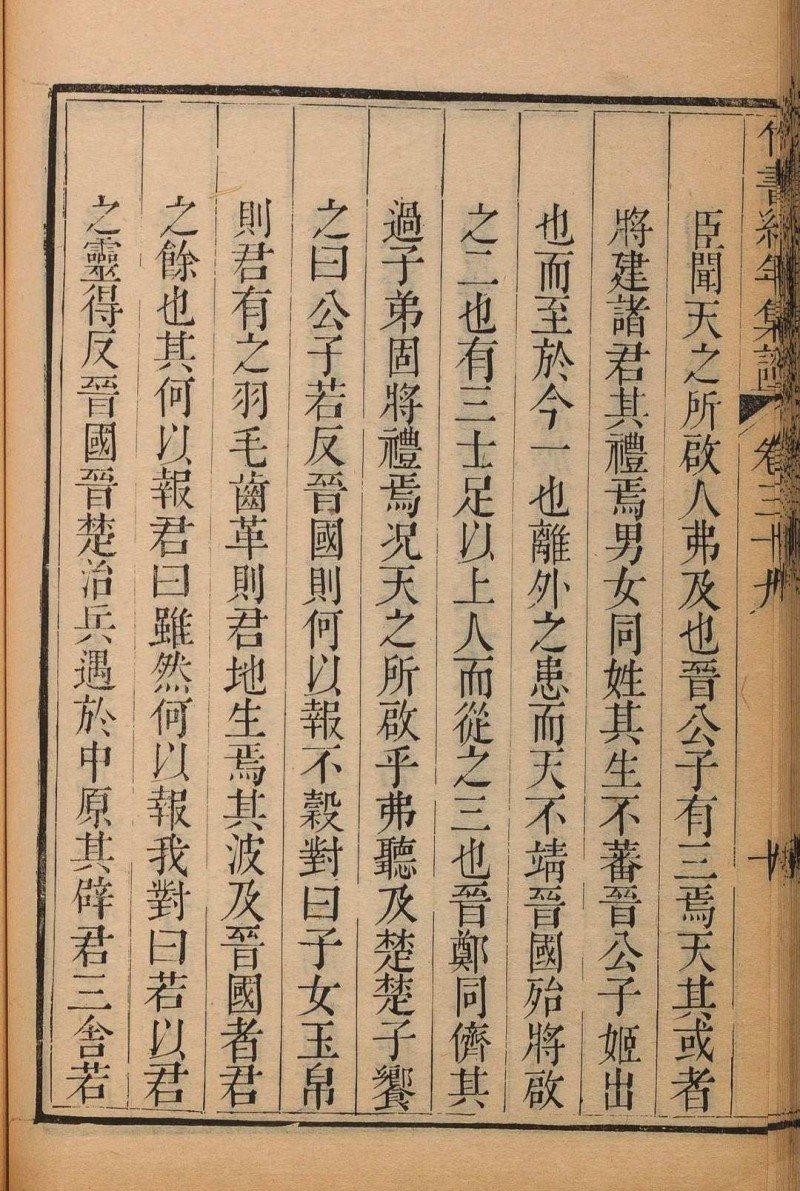 竹書紀年集證 卷三十九
臣聞天之所啟人弗及也晉公子有三焉天其或者
將建諸君其禮焉男女同姓其生不蕃晉公子姬出
也而至於今一也離外之患而天不靖晉國殆將啟
之二也有三士足以上人而從之三也晉鄭同儕其
過子弟固將禮焉况天之所啟乎弗聽及楚楚子饗
之曰公子若反晉國則何以報不穀對曰子女玉帛
則君有之羽毛齒革則君地生焉其波及晉國者君
之餘也其何以報君曰雖然何以報我對曰若以君
之靈得反晉國晉楚治兵遇於中原其辟君三舍若